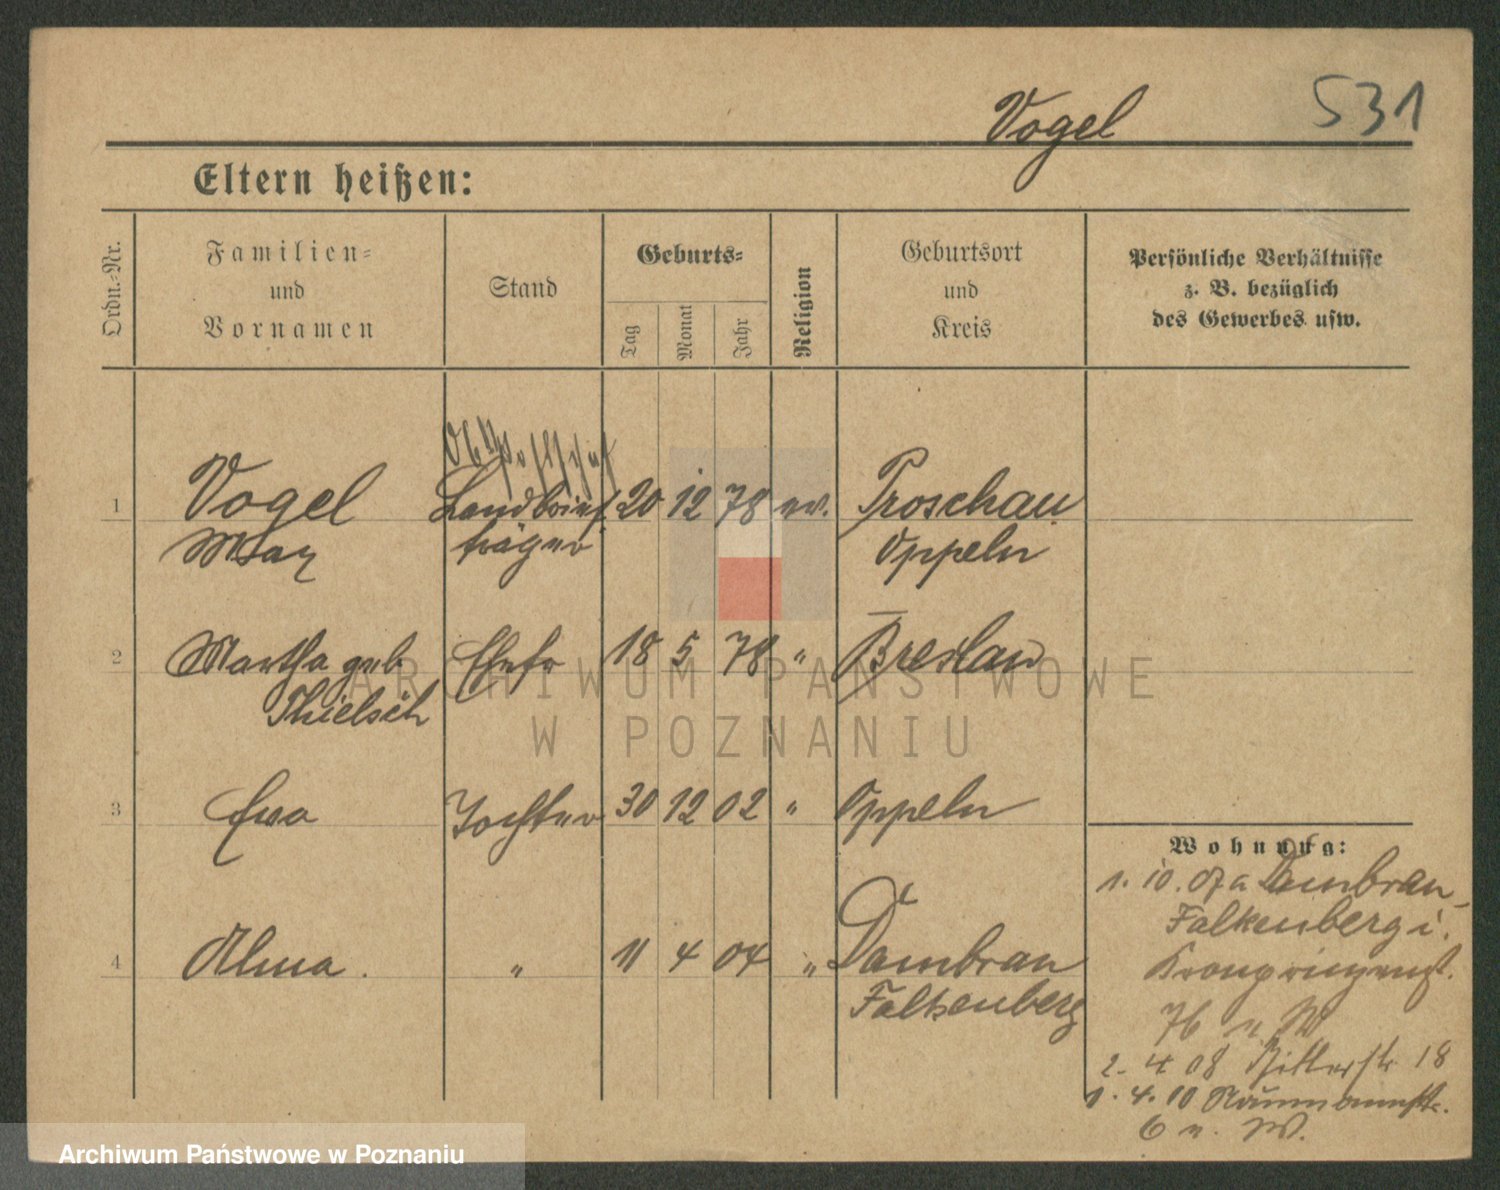 Vogel 531
Eltern heißen:
Ordn.-Nr.
Familien-
und
Vornamen
Stand
Geburts-
Tag
Monat
Jahr
Religion
Geburtsort
und
Kreis
Persönliche Verhältnisse
z. B. bezüglich
des Gewerbes usw.
1 Vogel Landbrief 20 12 78 ev. Proschau
Max träger Oppeln
2 Martha geb Ehefr 18 5 78 " Breslau
Thielsch
3 Ewa Tochter 30 12 02 " Oppeln
4 Alma. " 11 4 04 " Dambrau
Falkenberg
Wohnung:
1. 10. 07 a Dambrau-
Falkenberg i.
Kronprinzenst.
76 n W
2. 4 08 Ritterstr 18
1. 4. 10 Naumannstr.
6 n. W.
ARCHIWUM PAŃSTWOWE
W POZNANIU
Archiwum Państwowe w Poznaniu